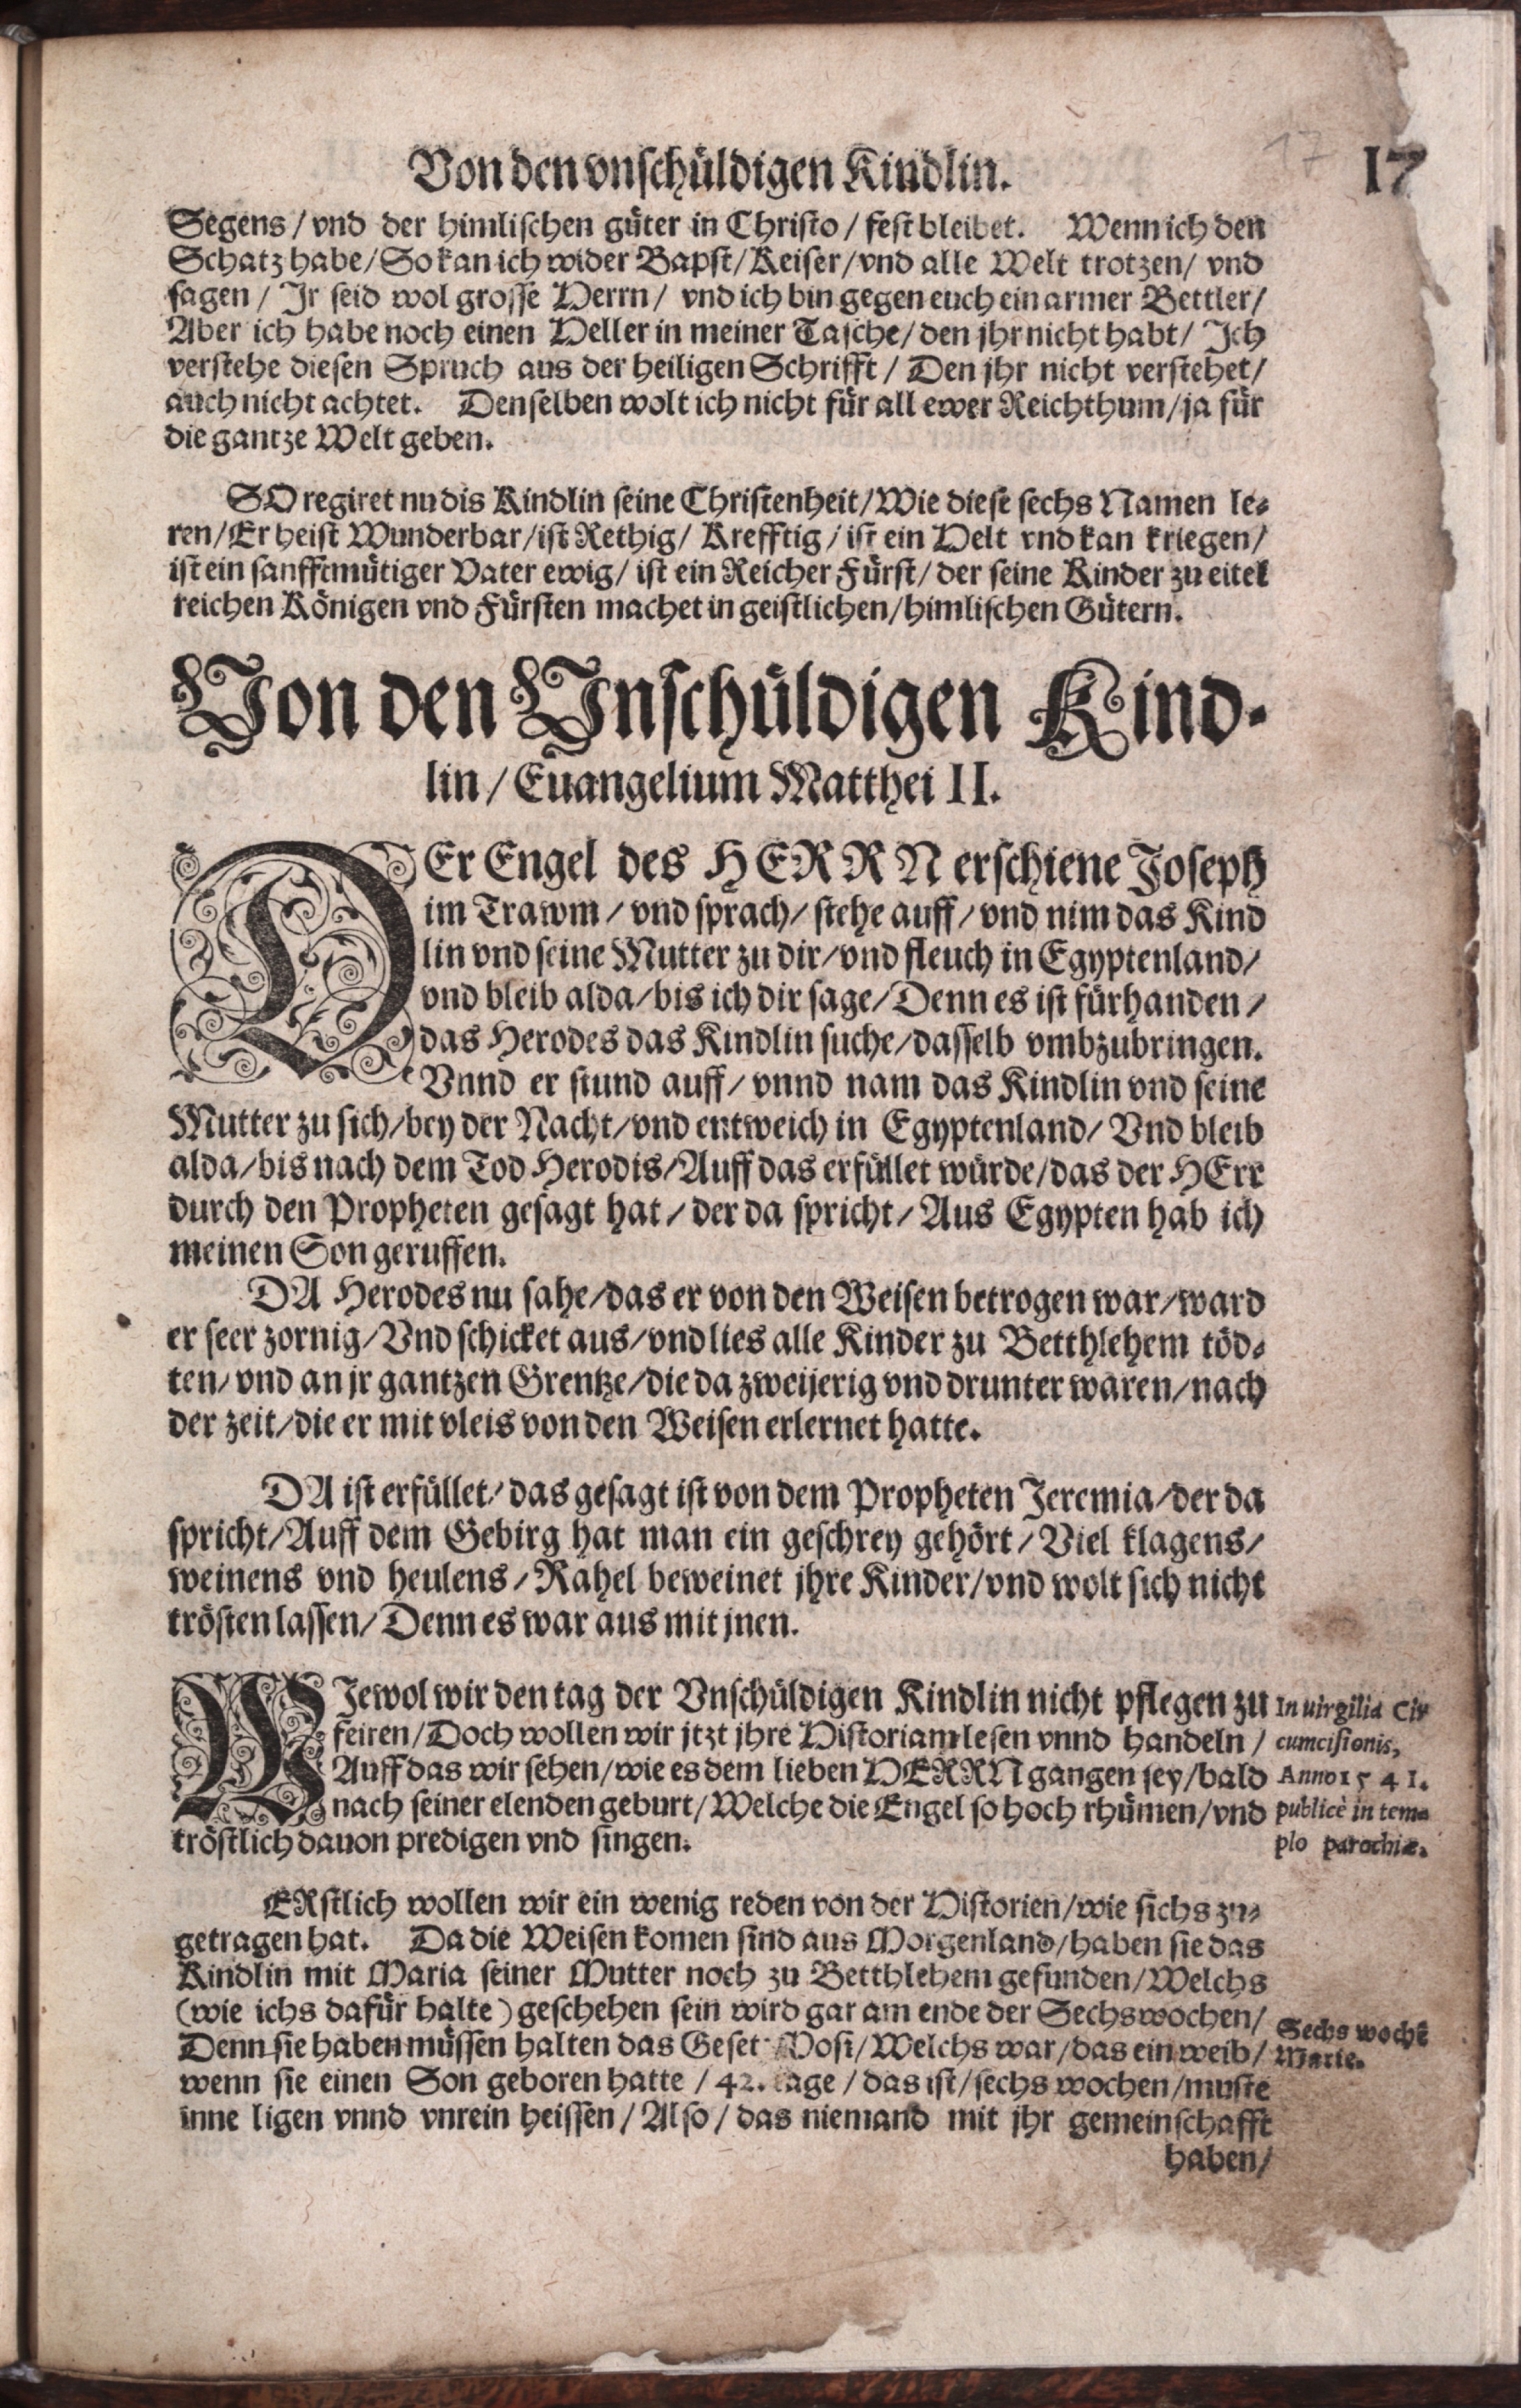 Von den vnſchüldigen Kindlin. 17
17
Segens / vnd der himliſchen güter in Chriſto / feſt bleibet. Wenn ich den
Schatz habe / So kan ich wider Bapſt / Keiſer / vnd alle Welt trotzen / vnd
ſagen / Jr ſeid wol groſſe Herrn / vnd ich bin gegen euch ein armer Bettler /
Aber ich habe noch einen Heller in meiner Taſche / den jhr nicht habt / Jch
verſtehe dieſen Spruch aus der heiligen Schrifft / Den jhr nicht verſtehet /
auch nicht achtet. Denſelben wolt ich nicht für all ewer Reichthum / ja für
die gantze Welt geben.
SO regiret nu dis Kindlin ſeine Chriſtenheit / Wie dieſe ſechs Namen le⸗
ren / Er heiſt Wunderbar / iſt Rethig / Krefftig / iſt ein Helt vnd kan kriegen /
iſt ein ſanfftmütiger Vater ewig / iſt ein Reicher Fürſt / der ſeine Kinder zu eitel
reichen Königen vnd Fürſten machet in geiſtlichen / himliſchen Gütern.
Von den Vnſchüldigen Kind⸗
lin / Euangelium Matthei II.
DEr Engel des HERRN erſchiene Joſeph
im Trawm / vnd ſprach / ſtehe auff / vnd nim das Kind
lin vnd ſeine Mutter zu dir / vnd fleuch in Egyptenland /
vnd bleib alda / bis ich dir ſage / Denn es iſt fürhanden /
das Herodes das Kindlin ſuche / daſſelb vmbzubringen.
Vnnd er ſtund auff / vnnd nam das Kindlin vnd ſeine
Mutter zu ſich / bey der Nacht / vnd entweich in Egyptenland / Vnd bleib
alda / bis nach dem Tod Herodis / Auff das erfüllet würde / das der HErr
durch den Propheten geſagt hat / der da ſpricht / Aus Egypten hab ich
meinen Son geruffen.
DA Herodes nu ſahe / das er von den Weiſen betrogen war / ward
er ſeer zornig / Vnd ſchicket aus / vnd lies alle Kinder zu Betthlehem töd⸗
ten / vnd an jr gantzen Grentze / die da zweijerig vnd drunter waren / nach
der zeit / die er mit vleis von den Weiſen erlernet hatte.
DA iſt erfüllet / das geſagt iſt von dem Propheten Jeremia / der da
ſpricht / Auff dem Gebirg hat man ein geſchrey gehört / Viel klagens /
weinens vnd heulens / Rahel beweinet jhre Kinder / vnd wolt ſich nicht
tröſten laſſen / Denn es war aus mit jnen.
WJewol wir den tag der Vnſchüldigen Kindlin nicht pflegen zu
feiren / Doch wollen wir jtzt jhre Hiſtoriam leſen vnnd handeln /
Auff das wir ſehen / wie es dem lieben HERRN gangen ſey / bald
nach ſeiner elenden geburt / Welche die Engel ſo hoch rhümen / vnd
tröſtlich dauon predigen vnd ſingen.
In uirgilia Cir
cumciſionis,
Anno 1541.
publicè in tem⸗
plo parochiæ.
ERſtlich wollen wir ein wenig reden von der Hiſtorien / wie ſichs zu⸗
getragen hat. Da die Weiſen komen ſind aus Morgenland / haben ſie das
Kindlin mit Maria ſeiner Mutter noch zu Betthlehem gefunden / Welchs
(wie ichs dafür halte) geſchehen ſein wird gar am ende der Sechswochen /
Denn ſie haben müſſen halten das Geſet Moſi / Welchs war / das ein weib /
wenn ſie einen Son geboren hatte / 42. tage / das iſt / ſechs wochen / muſte
inne ligen vnnd vnrein heiſſen / Alſo / das niemand mit jhr gemeinſchafft
Sechs wochē
Marie.
haben /